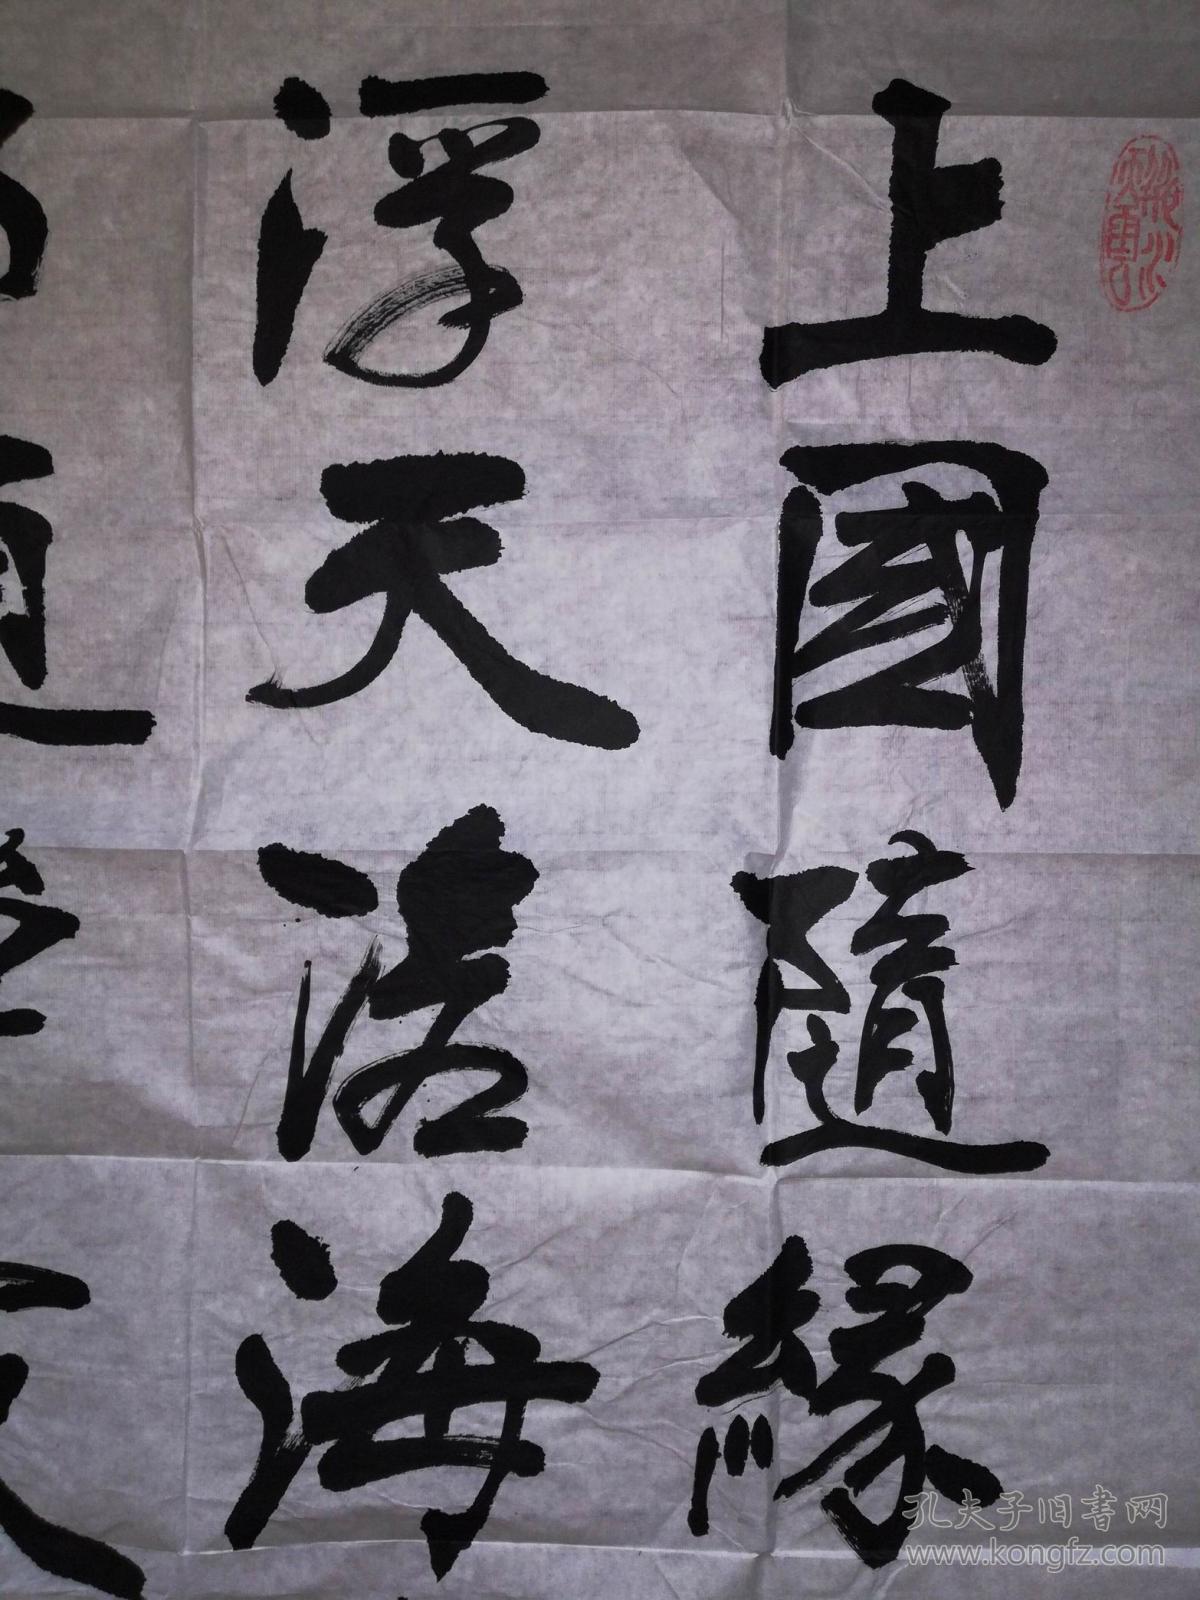 上國隨緣
浮天滄海
孔夫子旧书网
www.kongfz.com